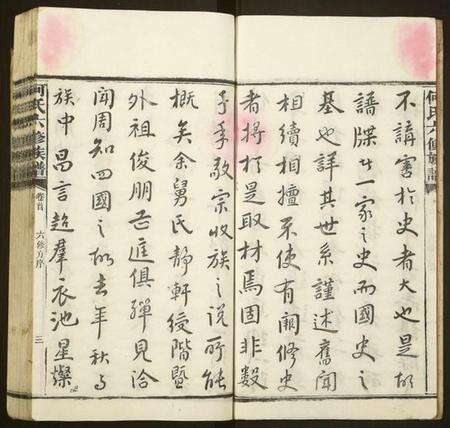 不講害於史者大也是故
譜牒者一家之史而國史之
基也詳其世系謹述舊聞
相續相擅不使有闕修史
者將於是取材焉固非數
子孝敬宗收族之說所能
概矣余舅氏靜軒绶階暨
外祖俊朋正匡俱殫見洽
聞周知四國之故去年秋与
族中昌言超群衣池星燦
何氏六修族譜
卷首
六修序
三
何氏六修族譜